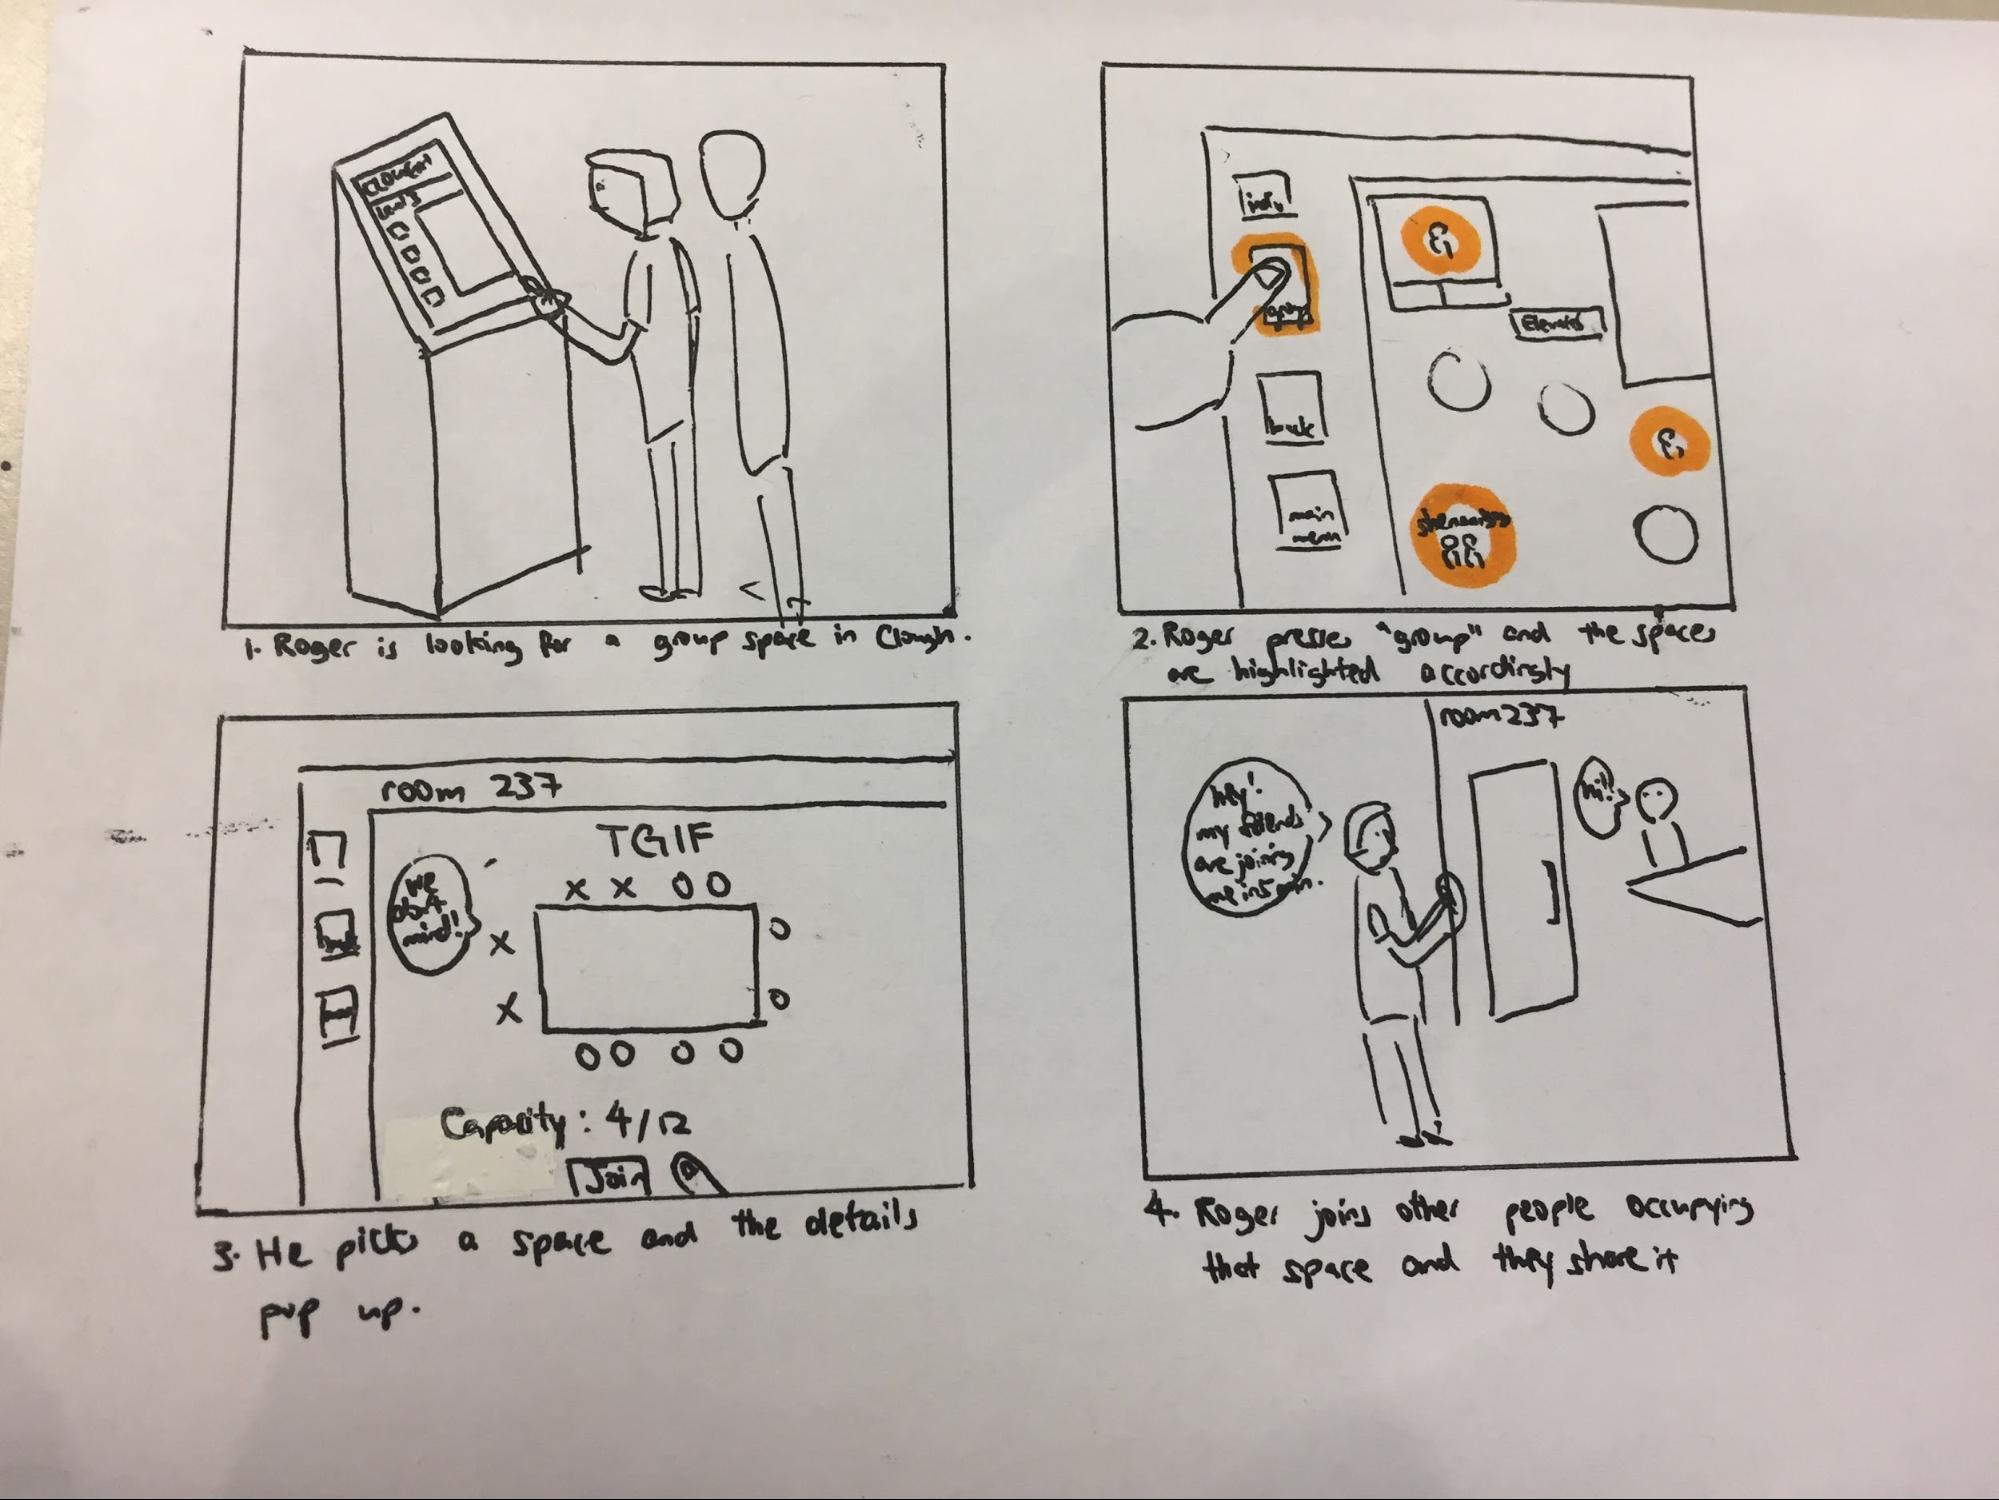 1. Roger is looking for a group space in Clough.
info
group
back
main
menu
Elevator
2. Roger presses "group" and the spaces
are highlighted accordingly
room 237
TGIF
We
don't
mind!
x x O O
x O
x O
O O O O
Capacity: 4/12
Join
3. He picks a space and the details
pop up.
room 237
hey!
my friends
are joining
me in 5 min.
hi!
4. Roger joins other people occupying
that space and they share it